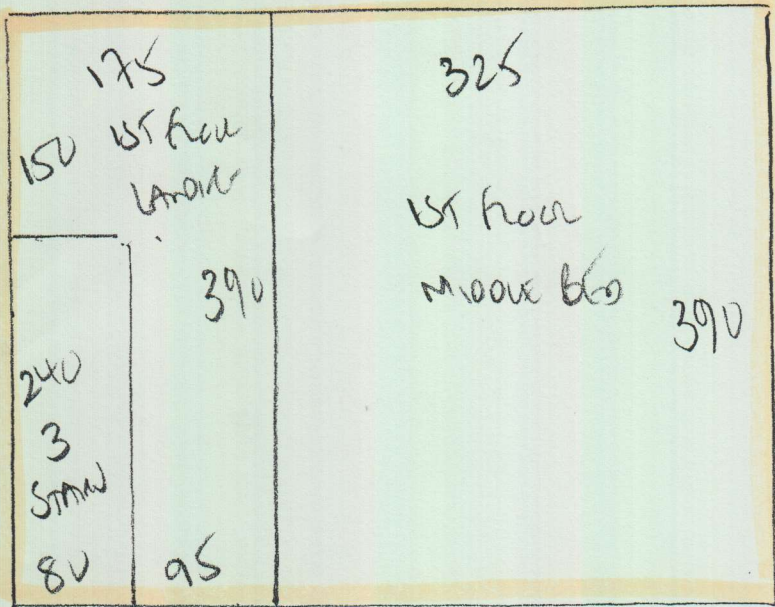 175
150
1ST FLOOR
LANDING
390
240
3
STAIRS
80
95
325
1ST FLOOR
MIDDLE BED
390